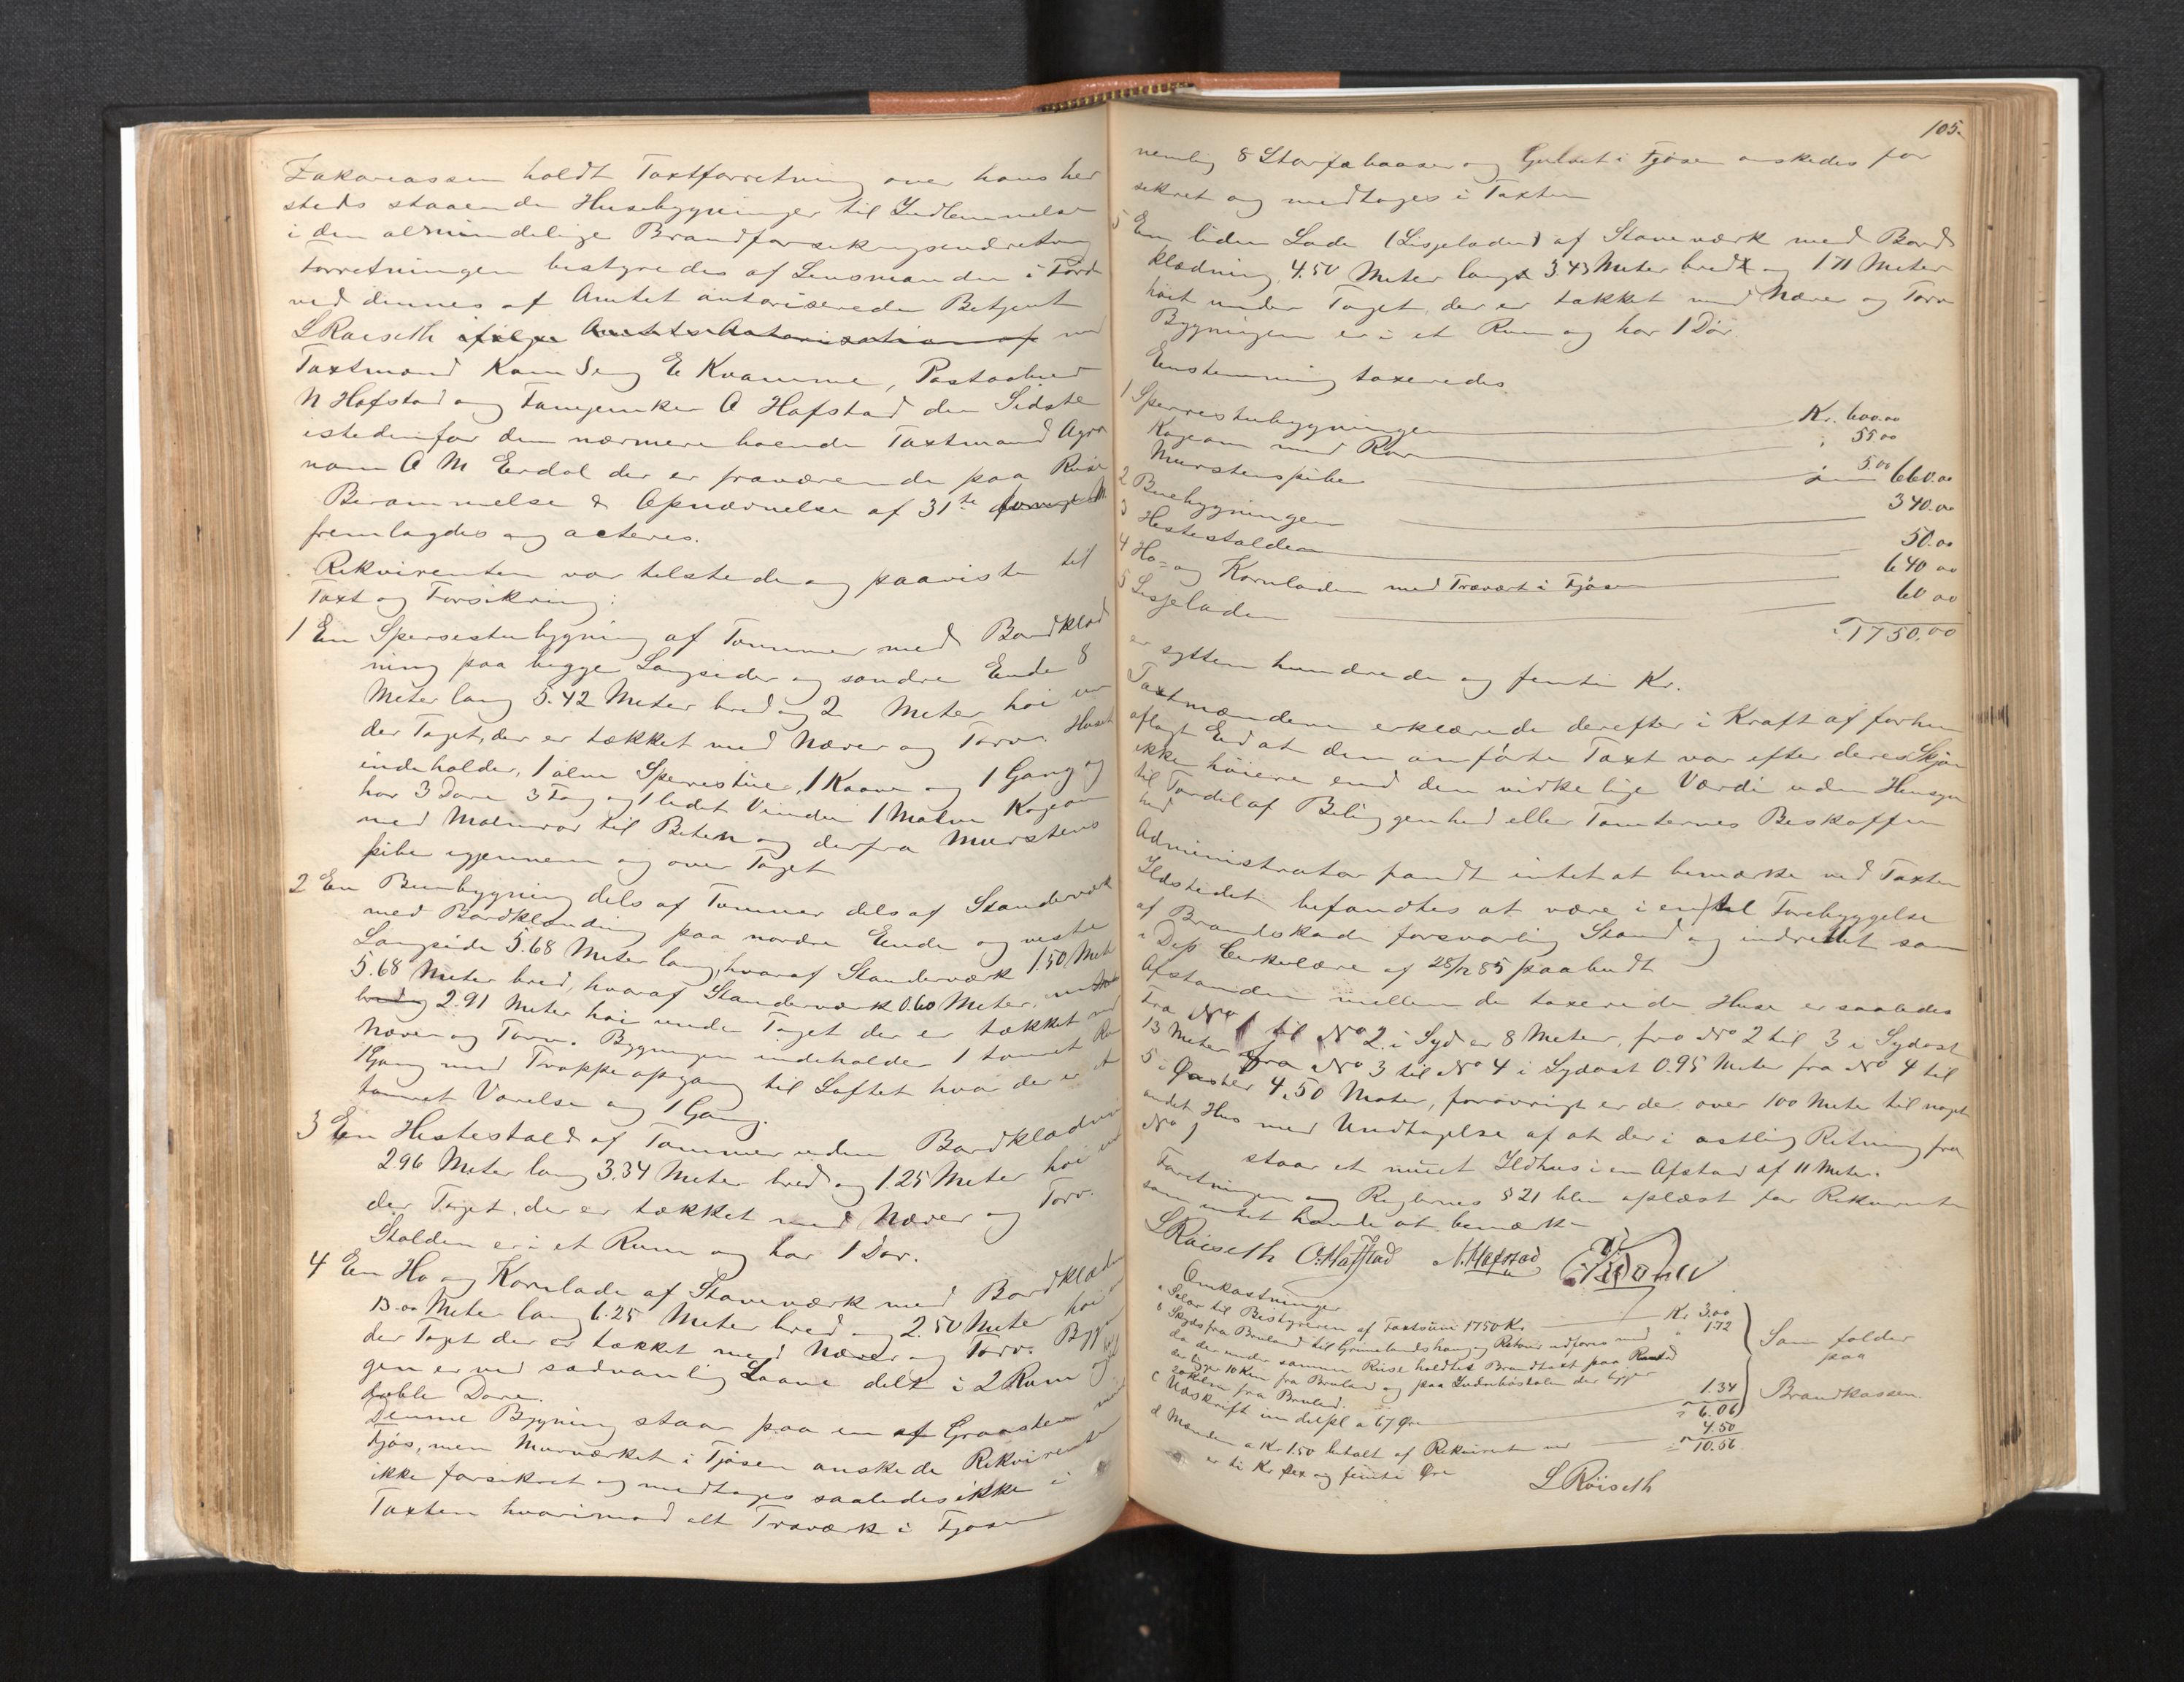 Zakariassen holdt Taxtforretning over hans her
steds staaende Husebygninger til Indlemmelse
i den almindelige Brandforsikringsindretning
Forretningen bestyredes af Lensmanden i Førde
ved dennes af Amtet autoriserede Betjent
L Røiseth ifølge Amtets Autorisation af med
Taxtmænd E Kvamme, Postaabner
N Hafstad og A Hafstad den Sidste
istedenfor den nærmere boende Taxtmand Agro
nom A M Erdal der er fraværende paa Reise
Berammelse & Opnævnelse af 31te
fremlagdes og acteres.
Rekvirenten var tilstede og paaviste til
Taxt og Forsikring:
1 En Sperrestubygning af Tømmer med Bordklæd
ning paa begge Langsider og søndre Ende 8
Meter lang 5.42 Meter bred og 2 Meter høi un
der Taget, der er tækket med Næver og Torv. Huset
indeholder, 1 alm Sperrestue, 1 Kove og 1 Gang og
har 3 Døre 3 Fag og 1 ledet Vindu 1 Malm Kogeovn
med Malmrør til Beten og derfra Murstens
pibe igjennem og over Taget
2 En Buebygning dels af Tømmer dels af Standerværk
med Bordklædning paa nordre Ende og vestre
Langside 5.68 Meter lang, hvoraf Standerværk 1.50 Meter
5.68 Meter bred, hvoraf Standerværk 0.60 Meter,
bred og 2.91 Meter høi under Taget der er tækket med
Næver og Torv. Bygningen indeholder 1 tømret Rum
1 Gang med Trappeopgang til Loftet hvor der er et
tømret Værelse og 1 Gang.
3 En Hestestald af Tømmer uden Bordklædning
2.96 Meter lang 3.34 Meter bred og 1.25 Meter høi un
der Taget, der er tækket med Næver og Torv.
Stalden er i et Rum og har 1 Dør.
4 En Hø og Kornlade af Staveværk med Bordklædn
13.00 Meter lang 6.25 Meter bred og 2.50 Meter høi un
der Taget der er tækket med Næver og Torv. Bygnin
gen er ved sædvanlig Laave delt i 2 Rum og
dobble Døre.
Denne Bygning staar paa en af Graasten
Fjøs, men Murværket i Fjøsen ønskede Rekvirenten
ikke forsikret og medtages saaledes ikke i
Taxten hvorimod alt Træværk i Fjøsen
105.
nemlig 8 Storfæbaaser og Gulvet i Fjøsen ønskedes for
sikret og medtages i Taxten
5 En liden Lade (Lisjeladen) af Staveværk med Bord
klædning, 4.50 Meter lang 3.43 Meter bred og 1.71 Meter
høit under Taget der er tækket med Næver og Torv
Bygningen er i et Rum og har 1 Dør.
Eenstemmig taxeredes
1 Sperrestubygningen Kr. 600.00
Kogeovn med Rør " 55 00
Murstenspibe " 5.00 660.00
2 Buebygningen 340.00
3 Hestestalden 50.00
4 Hø- og Kornladen med Træværk i Fjøsen 640 00
5 Lisjeladen 60 00
1750.00
er sytten hundrede og femti Kr.
Taxtmændene erklærede derefter i Kraft af forhen
aflagt Eed at den anførte Taxt var efter deres Skjøn
ikke høiere end den virkelige Værdi uden Hensyn
til Fordel af Beliggenhed eller Tomternes Beskaffen
hed
Administrator fandt intet at bemærke ved Taxten
Ildstedet befandtes at være i en til Forebyggelse
af Brandskade forsvarlig Stand og indrettet som
i Dep. Cirkulære af 28/12 85 paabudt
Afstanden mellem de taxerede Huse er saaledes
Fra No 1 til No 2 i Syd er 8 Meter, fra No 2 til 3 i Sydost
13 Meter fra No 3 til No 4 i Sydost 0.95 Meter fra No 4 til
5 i 4.50 Meter, forøvrigt er der over 100 Meter til noget
andet Hus med Undtagelse af at der i østlig Retning fra
No 1 staar et muret Ildhus i en Afstand af 11 Meter.
Forretningen og Reglernes § 21 blev oplæst for Rekvirenten
som intet havde at bemærke
L Røiseth O. Hafstad N. Hafstad
Omkostninger
a Salær til Bestyreren af Taxtsum 1750 Kr Kr 3.00
b Skyds fra Bruland til Grimelandshaug og Retour udføres med " 1.72
da der under samme Reise holdtes Brandtaxt paa
der ligger 10 Km fra Bruland og paa der ligger
20 Klm fra Bruland.
c Udskrift a 67 Øre 1.34
" 6.06
Som falder
paa
Brandkassen
d Mænden a Kr 1.50 betalt af Rekvirent med 4.50
10.56
er ti Kr sex og femti Øre
L Røiseth